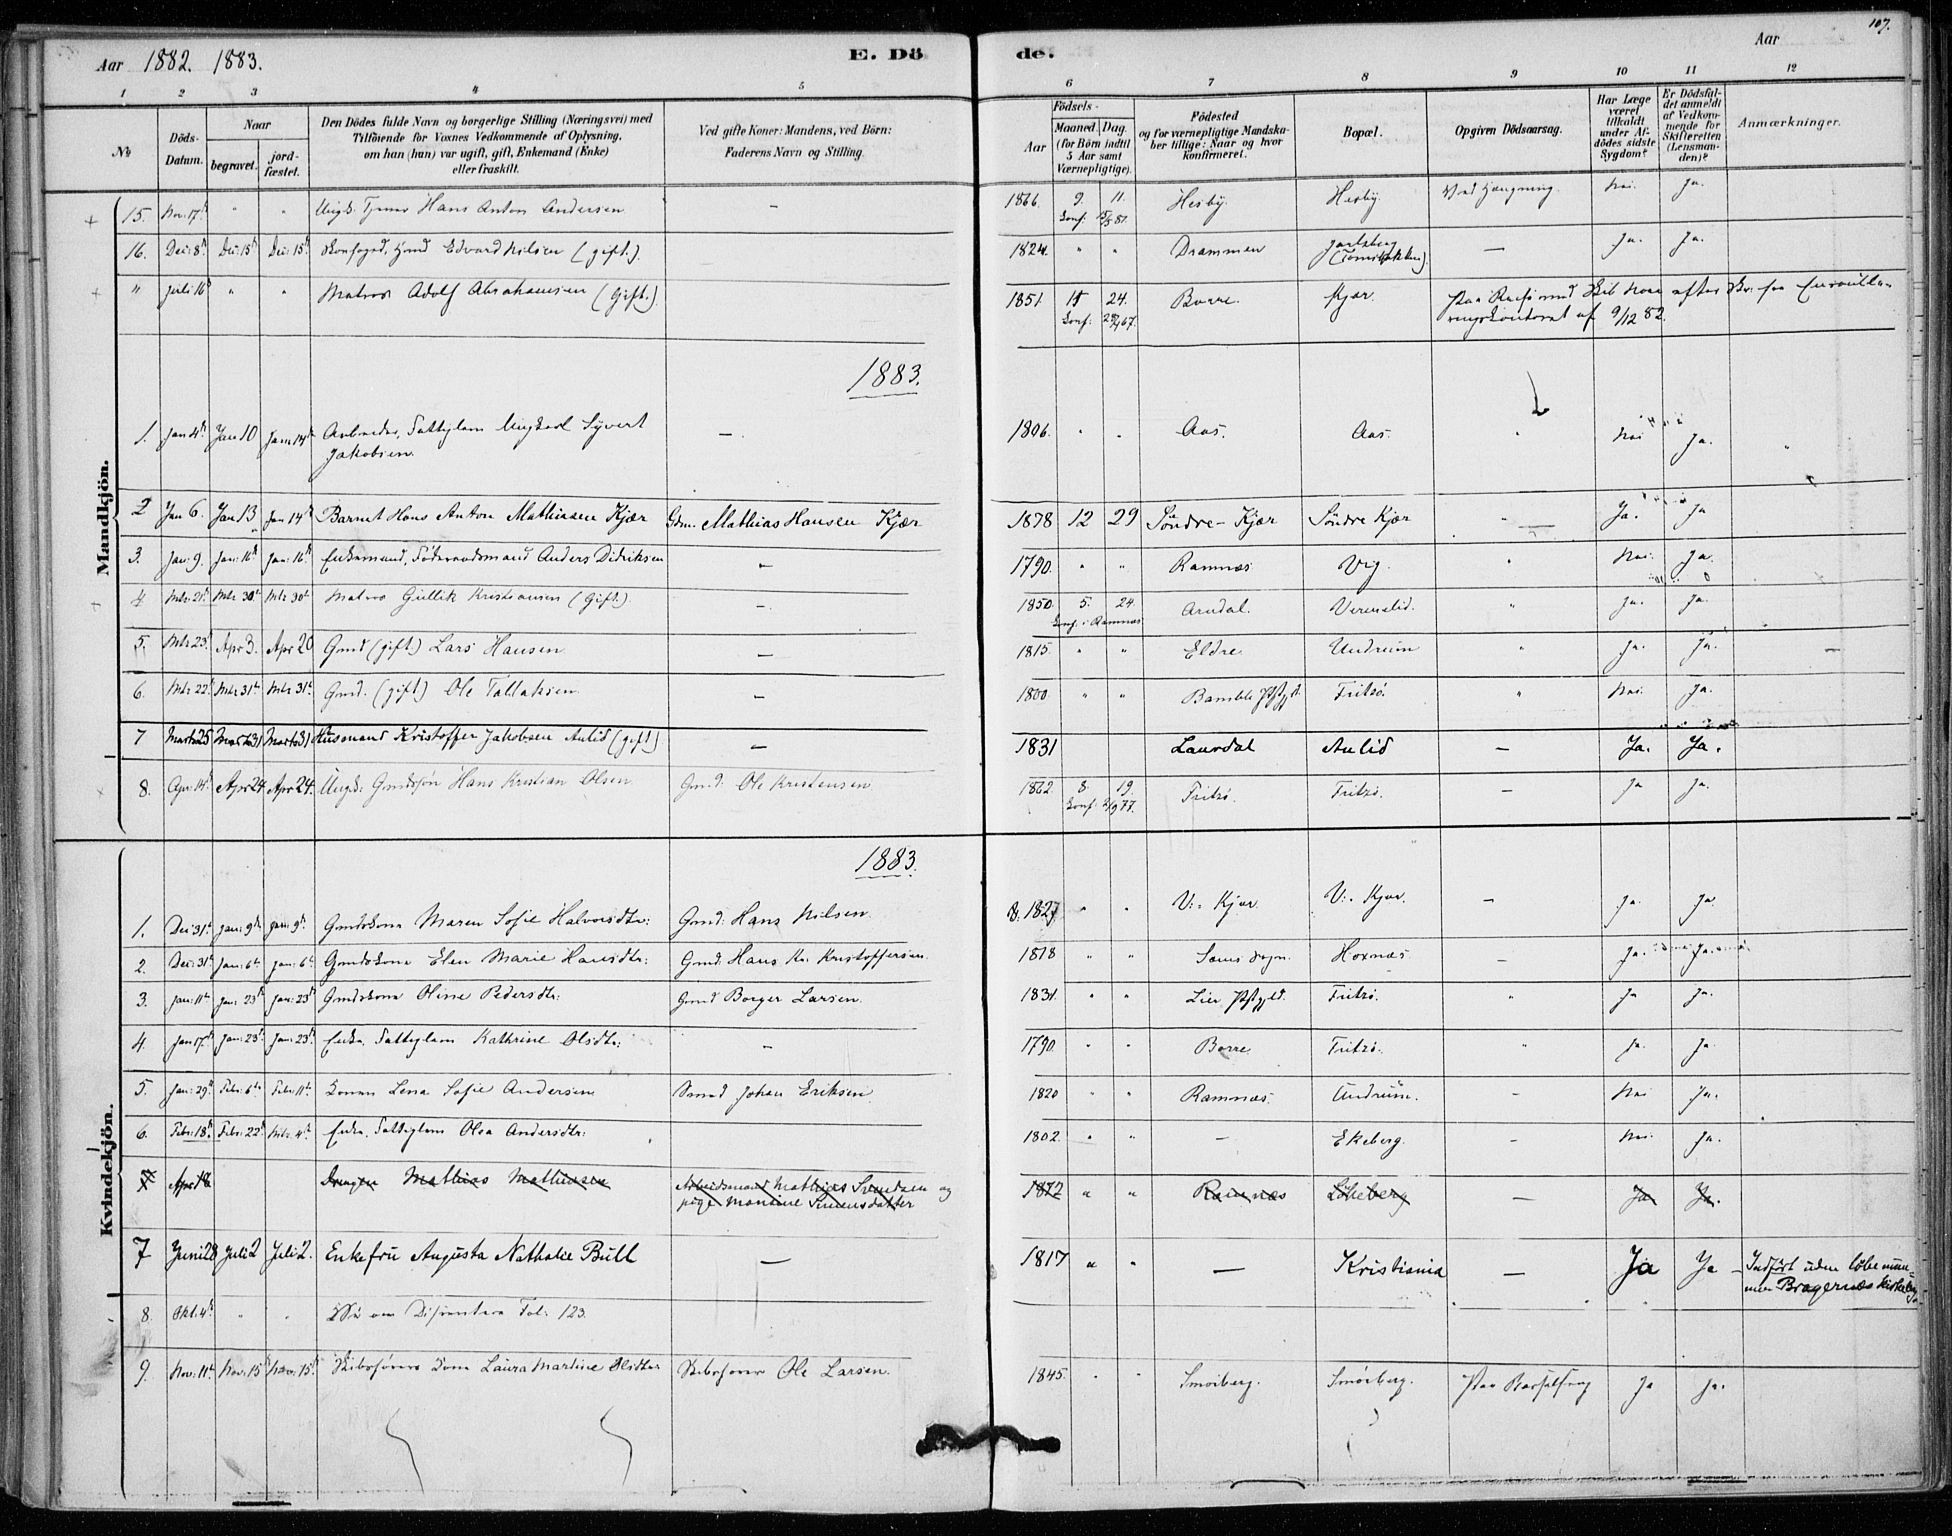 107.
Aar 1882. 1883. E. Dö de. Aar
1 2 3 4 5 6 7 8 9 10 11 12
No Döds-Datum. Naar begravet. jord-fæstet. Den Dödes fulde Navn og borgerlige Stilling (Næringsvei) med Tilföiende for Voxnes Vedkommende af Oplysning, om han (hun) var ugift, gift, Enkemand (Enke) eller fraskilt. Ved gifte Koner: Mandens, ved Börn: Faderens Navn og Stilling. Födsels- Aar Maaned. Dag. (for Börn indtil 5 Aar samt Værnepligtige). Födested og for værnepligtige Mandskaber tillige: Naar og hvor konfirmeret. Bopæl. Opgiven Dödsaarsag. Har Læge været tilkaldt under Afdödes sidste Sygdom? Er Dödsfaldet anmeldt af Vedkommende for Skifteretten (Lensmanden)? Anmærkninger.
Mandkjön.
15. Nov: 17de " " Ungk. Tjener Hans Anton Andersen — 1866. 9. 11. Konf. 15/5 81. Hesby. Hesby. Ved Hængning. Nei. Ja.
16. Dec: 8de Dec: 15de Dec: 15de Skovfoged, Gmd Edvard Nilsen (gift.). — 1824. " " Drammen Jarlsberg — Ja. Ja.
" Juli 16de " " Matros Adolf Abrahamsen (Gift.) — 1851 24. Konf: Borre. Kjær. Paa Reise med Skib efter Skr: fra Enroulle-
ringskontoret af 9/12 82.
1883.
1. Jan 4de Jan 10 Jan: 14de Arbeider, Fattiglem Ungkarl Syvert
Jakobsen. — 1806. " " Aas. Aas. " Nei Ja. "
2 Jan 6. Jan 13 Jan 14de Barnet Hans Anton Mathiasen Kjær Gdm. Mathias Hansen Kjær 1878 12 29 Söndre-Kjær Söndre Kjær " Ja. Ja
3. Jan: 9. Jan: 16de Jan: 16de Enkemand, Föderaadsmand Anders Didriksen — 1790. " " Ramnæs Vig. " Nei. Ja.
4 Mts: 21de Mts 30te Mts 30te Matros Gullik Kristiansen (Gift.) — 1850 5. 24. Konf. i Ramnæs Arndal. " Ja. Ja.
5. Mts 23. Apr 3. Apr 20 Gmd (gift) Lars Hansen — 1815. " " Eldre. Undrum " Ja. Ja. —
6. Mts 22. Mts 31te Mts 31te Gmd. (gift) Ole Tallaksen — 1800. " " Bamble Pstgjld. Fritzö. " Nei. Ja.
7 Marts 25 Marts 31 Marts 31 Husmand Kristoffer Jakobsen Aulid (gift) — 1831 Laurdal Aulid — Ja. Ja.
8. Apr: 14de Apr 24. Apr 24. Ungk: Gmdssön Hans Kristian Olsen Gmd: Ole Kristensen 1862. 8. 19. Konf: 2/9 77. Fritzö. Fritzö. — Ja Ja.
Kvindekjön.
1883.
1. Dec: 31te Jan: 9de Jan: 9de Gmdskone Maren Sofie Halvorsdtr: Gmd: Hans Nilsen 1827 " " V:. Kjær V:. Kjær. — Ja. Ja.
2. Dec: 31te Jan: 6te Jan: 6te Gmdskone Elen Marie Hansdtr: Gmd: Hans Kr. Kristoffersen 1818 " " Sems sogn. Hoxnæs — Ja. Ja.
3. Jan: 11te Jan: 23de Jan: 23de Gmdskone Oline Pedersdtr: Gmd Borger Larsen. 1831. " " Lier Pstgjld. Fritzö. " Ja Ja.
4. Jan 17de Jan: 23de Jan: 23de Enke, Fattiglem Kathrine Olsdtr: — 1790. " " Borre. Fritzö. " Ja. Ja.
5. Jan: 29de Febr: 6te Febr: 11te Konen Lena Sofie Andersen Smed Johan Eriksen. 1820 " " Ramnæs. Undrum. — Nei Ja.
6. Febr: 18de Febr: 22de Mts: 4de Enke, Fattiglem Olea Andersdtr: 1802. " " — Ekeberg. — Nei. Ja.
7 Apr 18 Drengen Mathias Mathiesen Arbeidsmand Mathias Svendsen og
pige Martine Simensdatter 1872 " " Ramnæs Lökeberg — Ja Ja.
7 Juni 28 Juli 2 Juli 2. Enkefru Augusta Nathalie Bull — 1817 " " — Kristiania — Ja Ja Indfört uden löbenum-
mer Bragernæs Kirkebog.
8. Okt. 4de " " Dissentere Fol: 123.
9. Nov: 11te Nov: 15de Nov: 15de Skibsförers Kone Laura Martine Olsdtr Skibsförer Ole Larsen. 1845. " " Smörberg. Smörberg. Paa Barselseng Ja Ja.